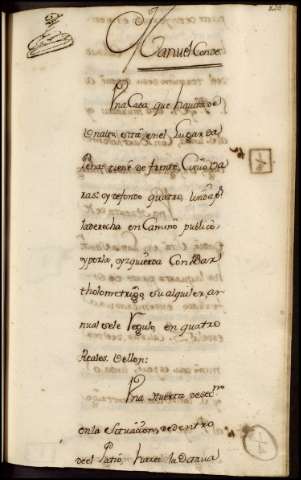 Manuel Conde
Una Casa que havita de
en el Lugar da
tiene de frente Cinco Ba
ras y de fondo quatro linda pr.
la derecha en Camino publico,
y por la, yzquierda Con Bar
tholome su alquiler, an
nual se le Regula en quatro
Reales. Vellon:
Una Huerta de sec.no
en la Situacion de dentro
de el hara la Octava